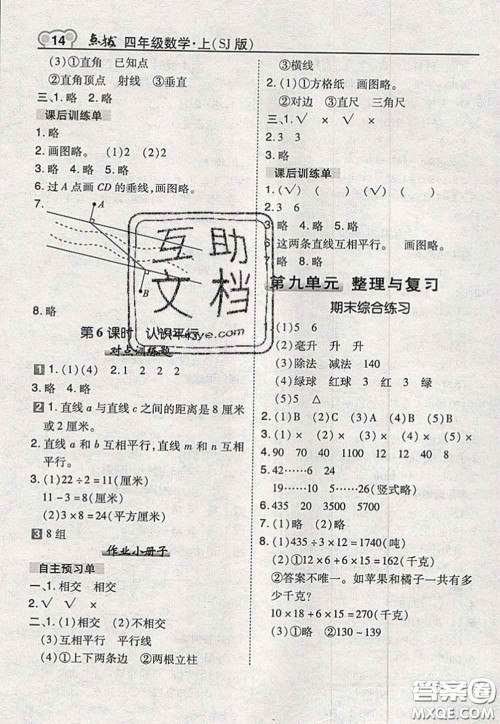 14 点拨 四年级数学·上(SJ版)
(3)①直角 已知点
②直角顶点 射线 ③垂直
三、1.略 2.略
课后训练单
1.略
2.画图略。 (1)2 (2)2
3.略 4.略 5.画图略。
6.过A点画CD的垂线,画图略。
7.
A
B
8.略
第6课时 认识平行
对点训练题
1 1.(1)(4) 2.1 2 2 2
3.略 4.略
2 1.直线a与直线c之间的距离是8厘米
或2厘米。
2.直线a和b互相平行,直线c与d互相平
行。
3.(1)22÷2=11(厘米)
11-3=8(厘米)
(2)3×8=24(平方厘米)
3 8组
作业小册子
自主预习单
一、1.相交 相交
2.√ √ √
二、1.(1)相交 (2)不相交
(3)互相平行 平行线
(4)①上下两条边 ②两根立柱
③横线
2.(1)①方格纸 ②画图略。
(2)①对边 ③直尺 三角尺
三、1.√ × √ ×
2.3 3
3.略
课后训练单
1.(√) (√) ( ) ( )
2.3 6
3.略 4.略 5.略
6.这两条直线互相平行。 画图略。
7.略 8.略
第九单元 整理与复习
期末综合练习
1.(1)5 6
(2)毫升 升 升
(3)除法 减法 140
(4)绿球 红球 3 红 3 绿
(5)5 △
2.× √ × × ×
3.(1)D (2)C (3)B (4)C (5)C
4.90 70 40 1100 1320 40
5.42……6 24
42……15 26……12(竖式略)
6.435 3500 5700
7.略
8.(1)435÷3×12=1740(吨)
(2)①12×6+6×15=162(千克)
②答案不唯一。如苹果和橘子一共有多
少千克?
10×18+6×15=270(千克)
(3)①130~139
互助
文档
答案圈
MXQE.COM